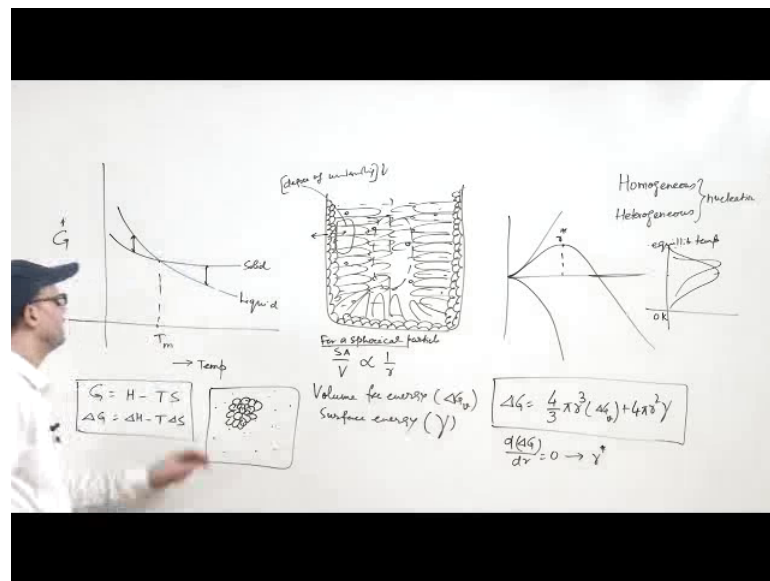 G
Solid
Liquid
Tm
→ Temp
G = H - TS
ΔG = ΔH - TΔS
[degree of
For a spherical particle
SA/V ∝ 1/r
Volume free energy (ΔGv)
Surface energy (γ)
r*
Homogeneous
Heterogeneous
} nucleation
temp
0K
ΔG = 4/3 πr³(ΔGv) + 4πr²γ
d(ΔG)/dr = 0 → r*